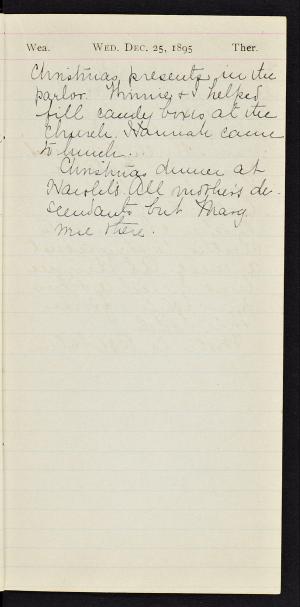 Wea. WED. DEC. 25, 1895 Ther.
Christmas presents in the
parlor. Minnie & I helped
fill candy boxes at the
Church. Hannah came
to lunch.
Christmas dinner at
Harold's. All mother's de-
scendants but Mary
were there.